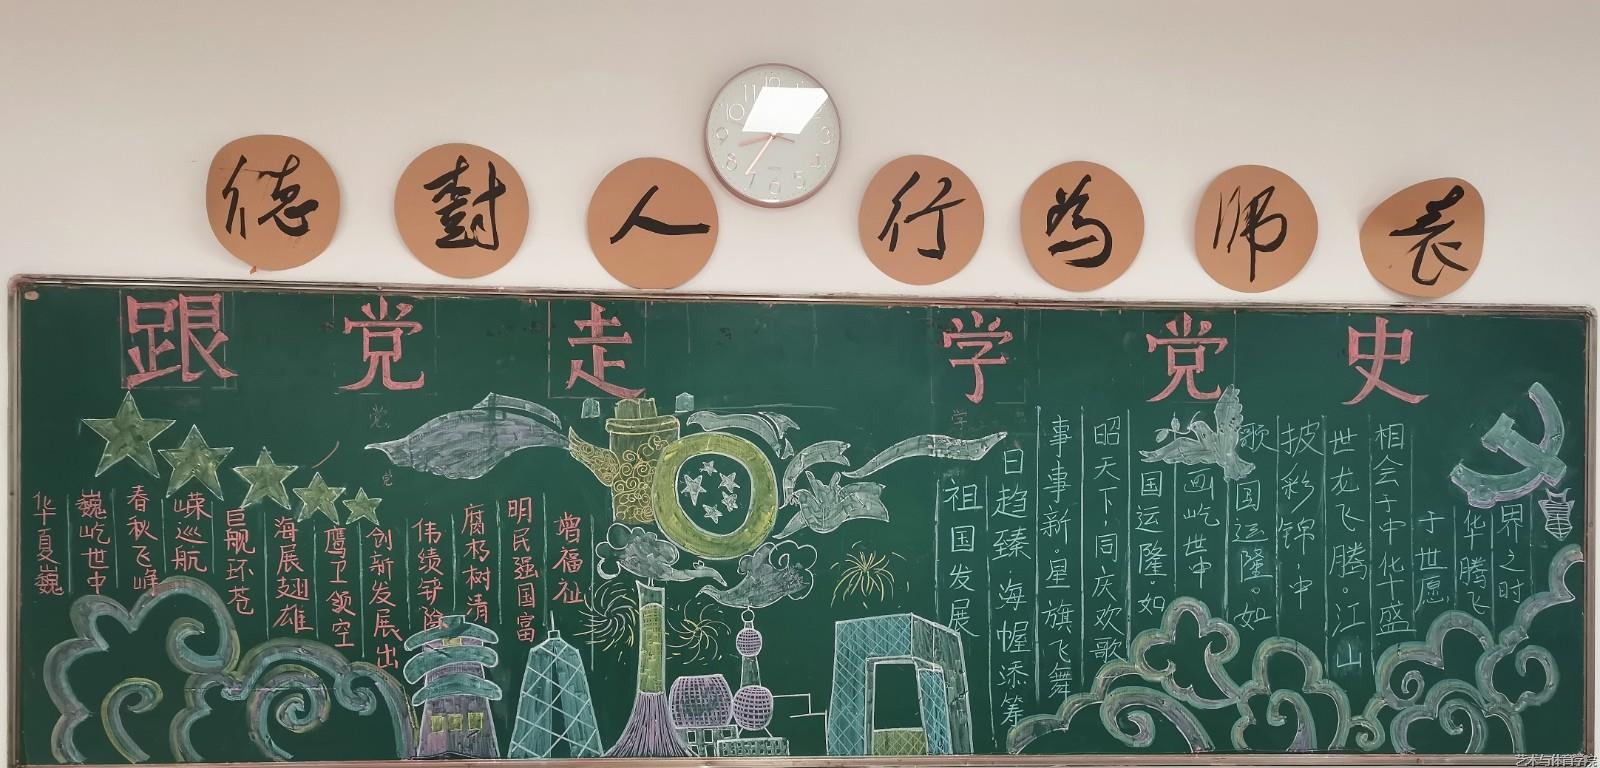 德對人行为师表
跟党走 学党史
华夏巍
巍屹世中
春秋飞峰
嵘巡航
巨舰环苍
海展翅雄
鹰卫领空
创新发展出
伟绩铲除
腐朽树清
明民强国富
增福祉
祖国发展
日趋臻·海幄添筹
事事新·星旗飞舞
昭天下·同庆欢歌
国运隆·如
画屹世中
歌国运隆。如
披彩锦·中
世龙飞腾。江山
相会于中华盛
于世愿
华腾飞
界之时
艺术与体育学院